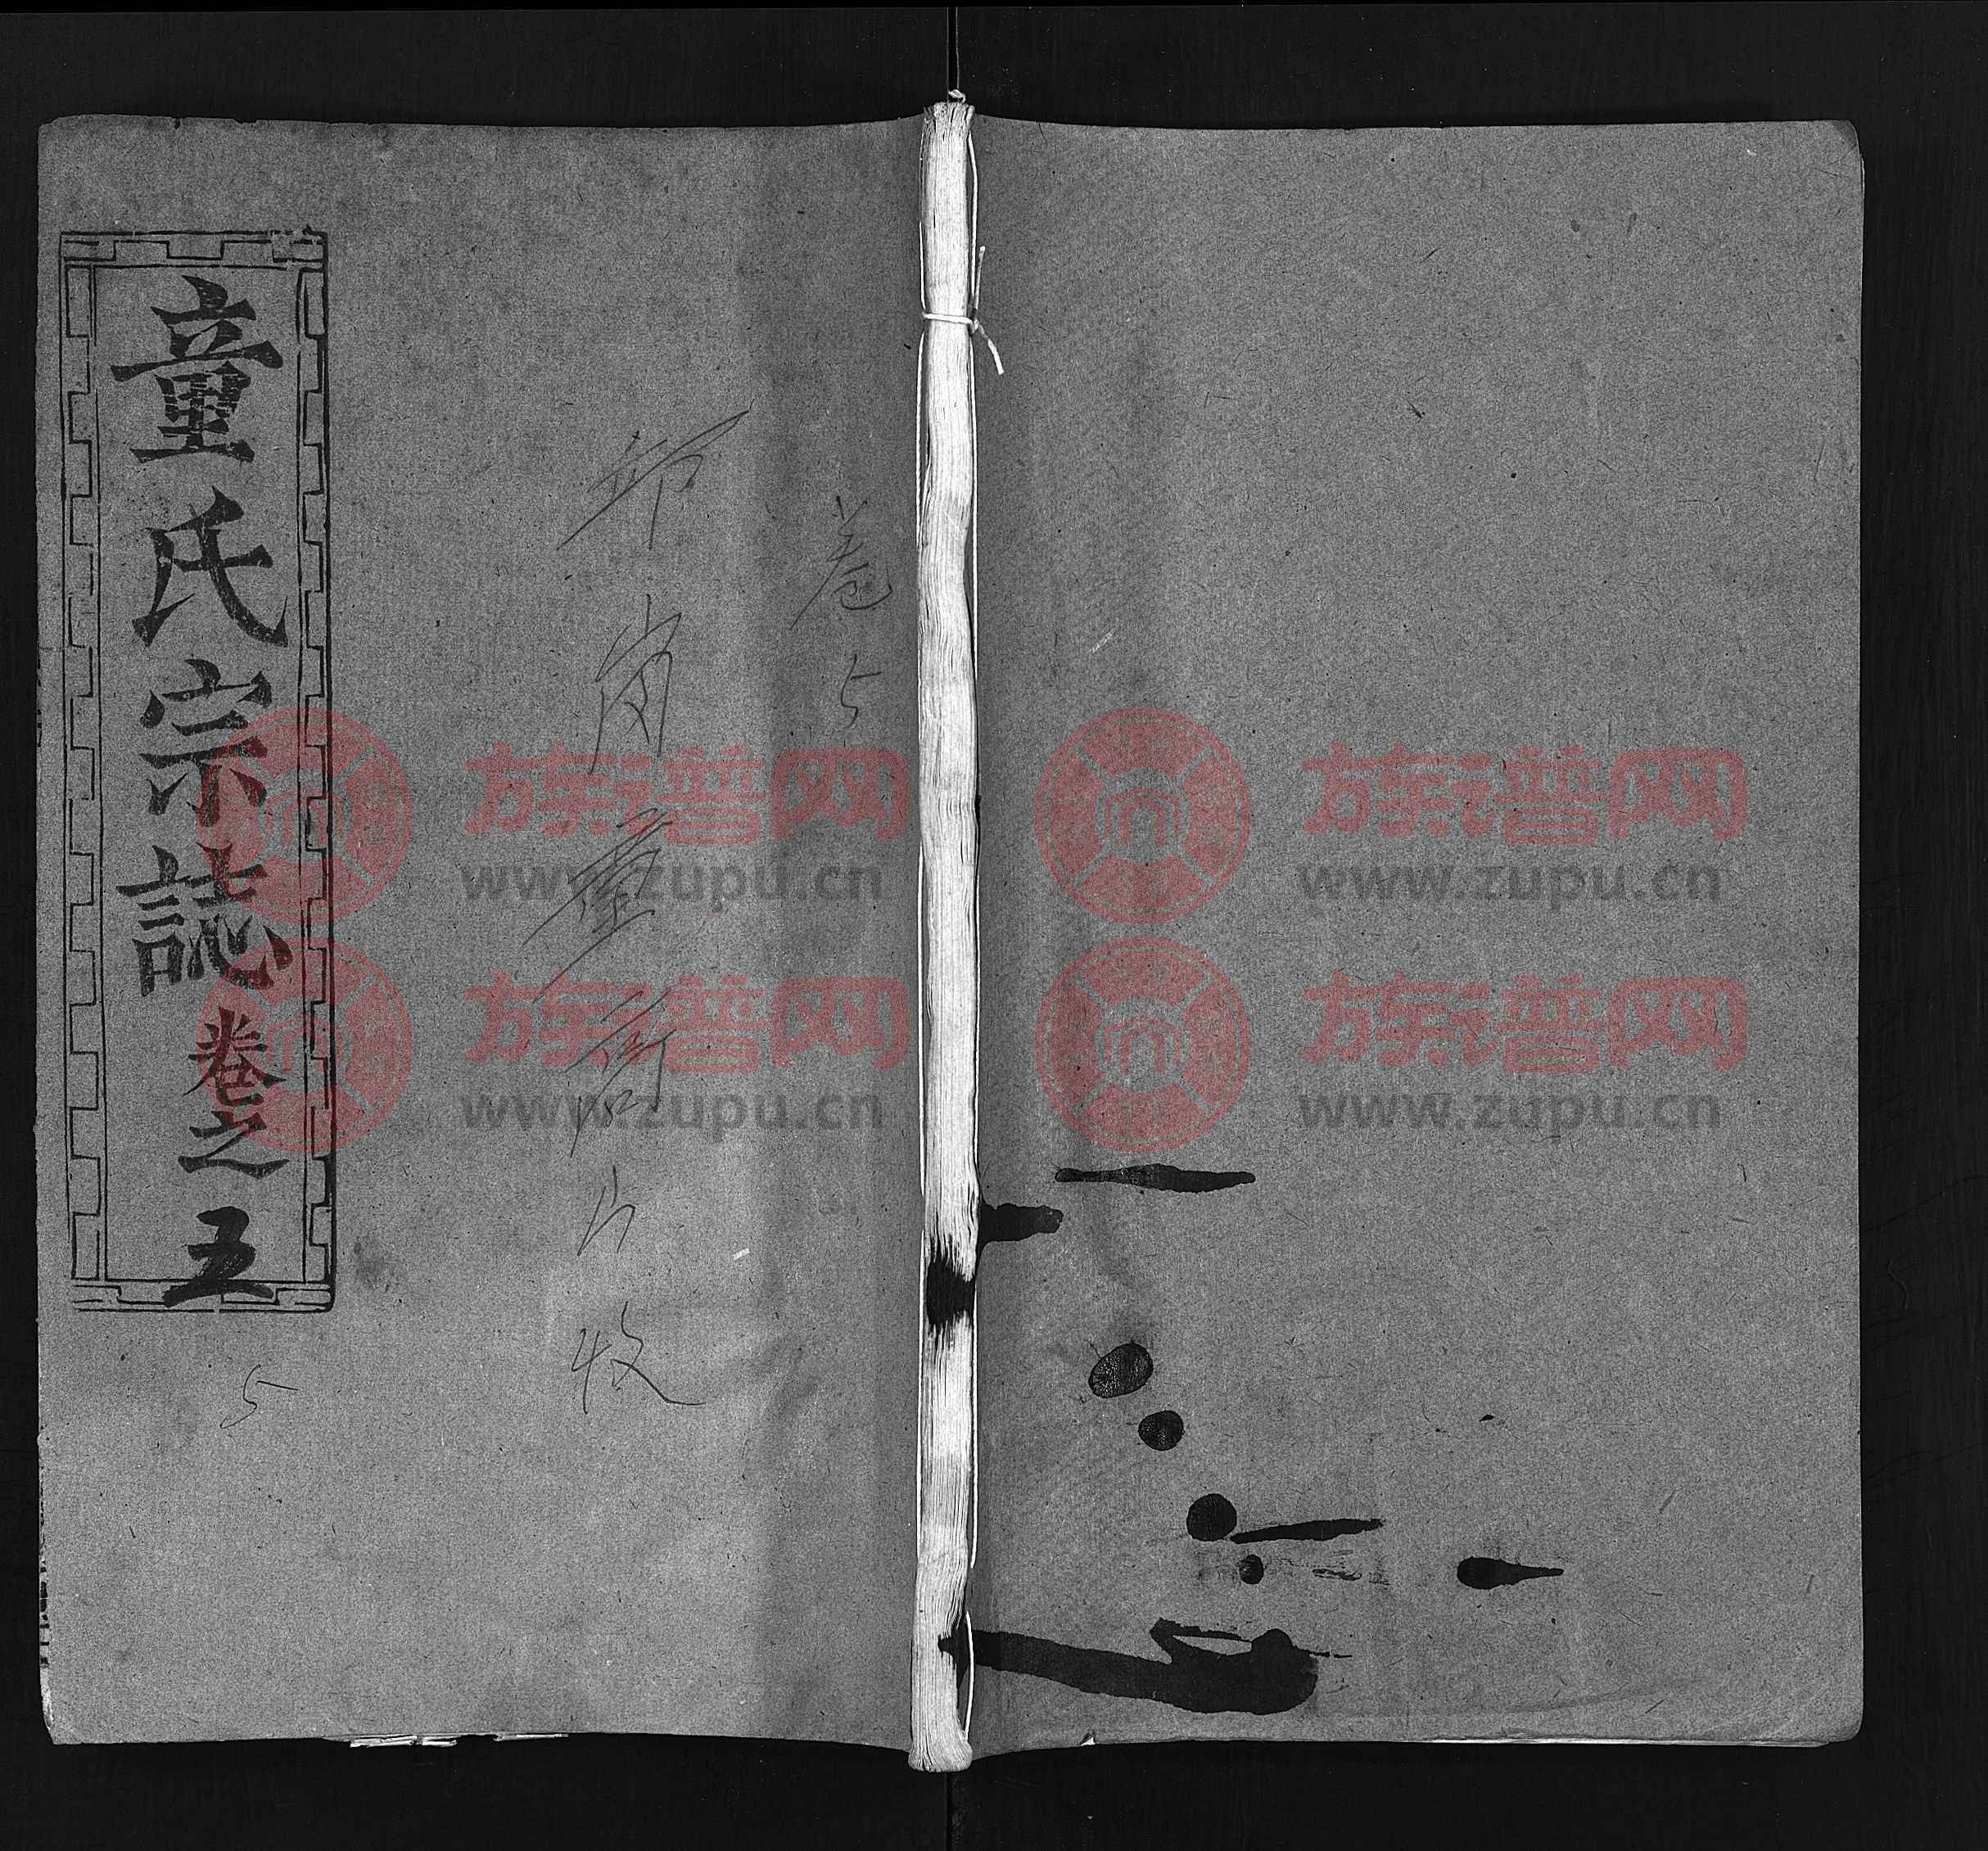 童氏宗誌卷之五
5
卷5
族谱网
www.zupu.cn
族谱网
www.zupu.cn
族谱网
www.zupu.cn
族谱网
www.zupu.cn